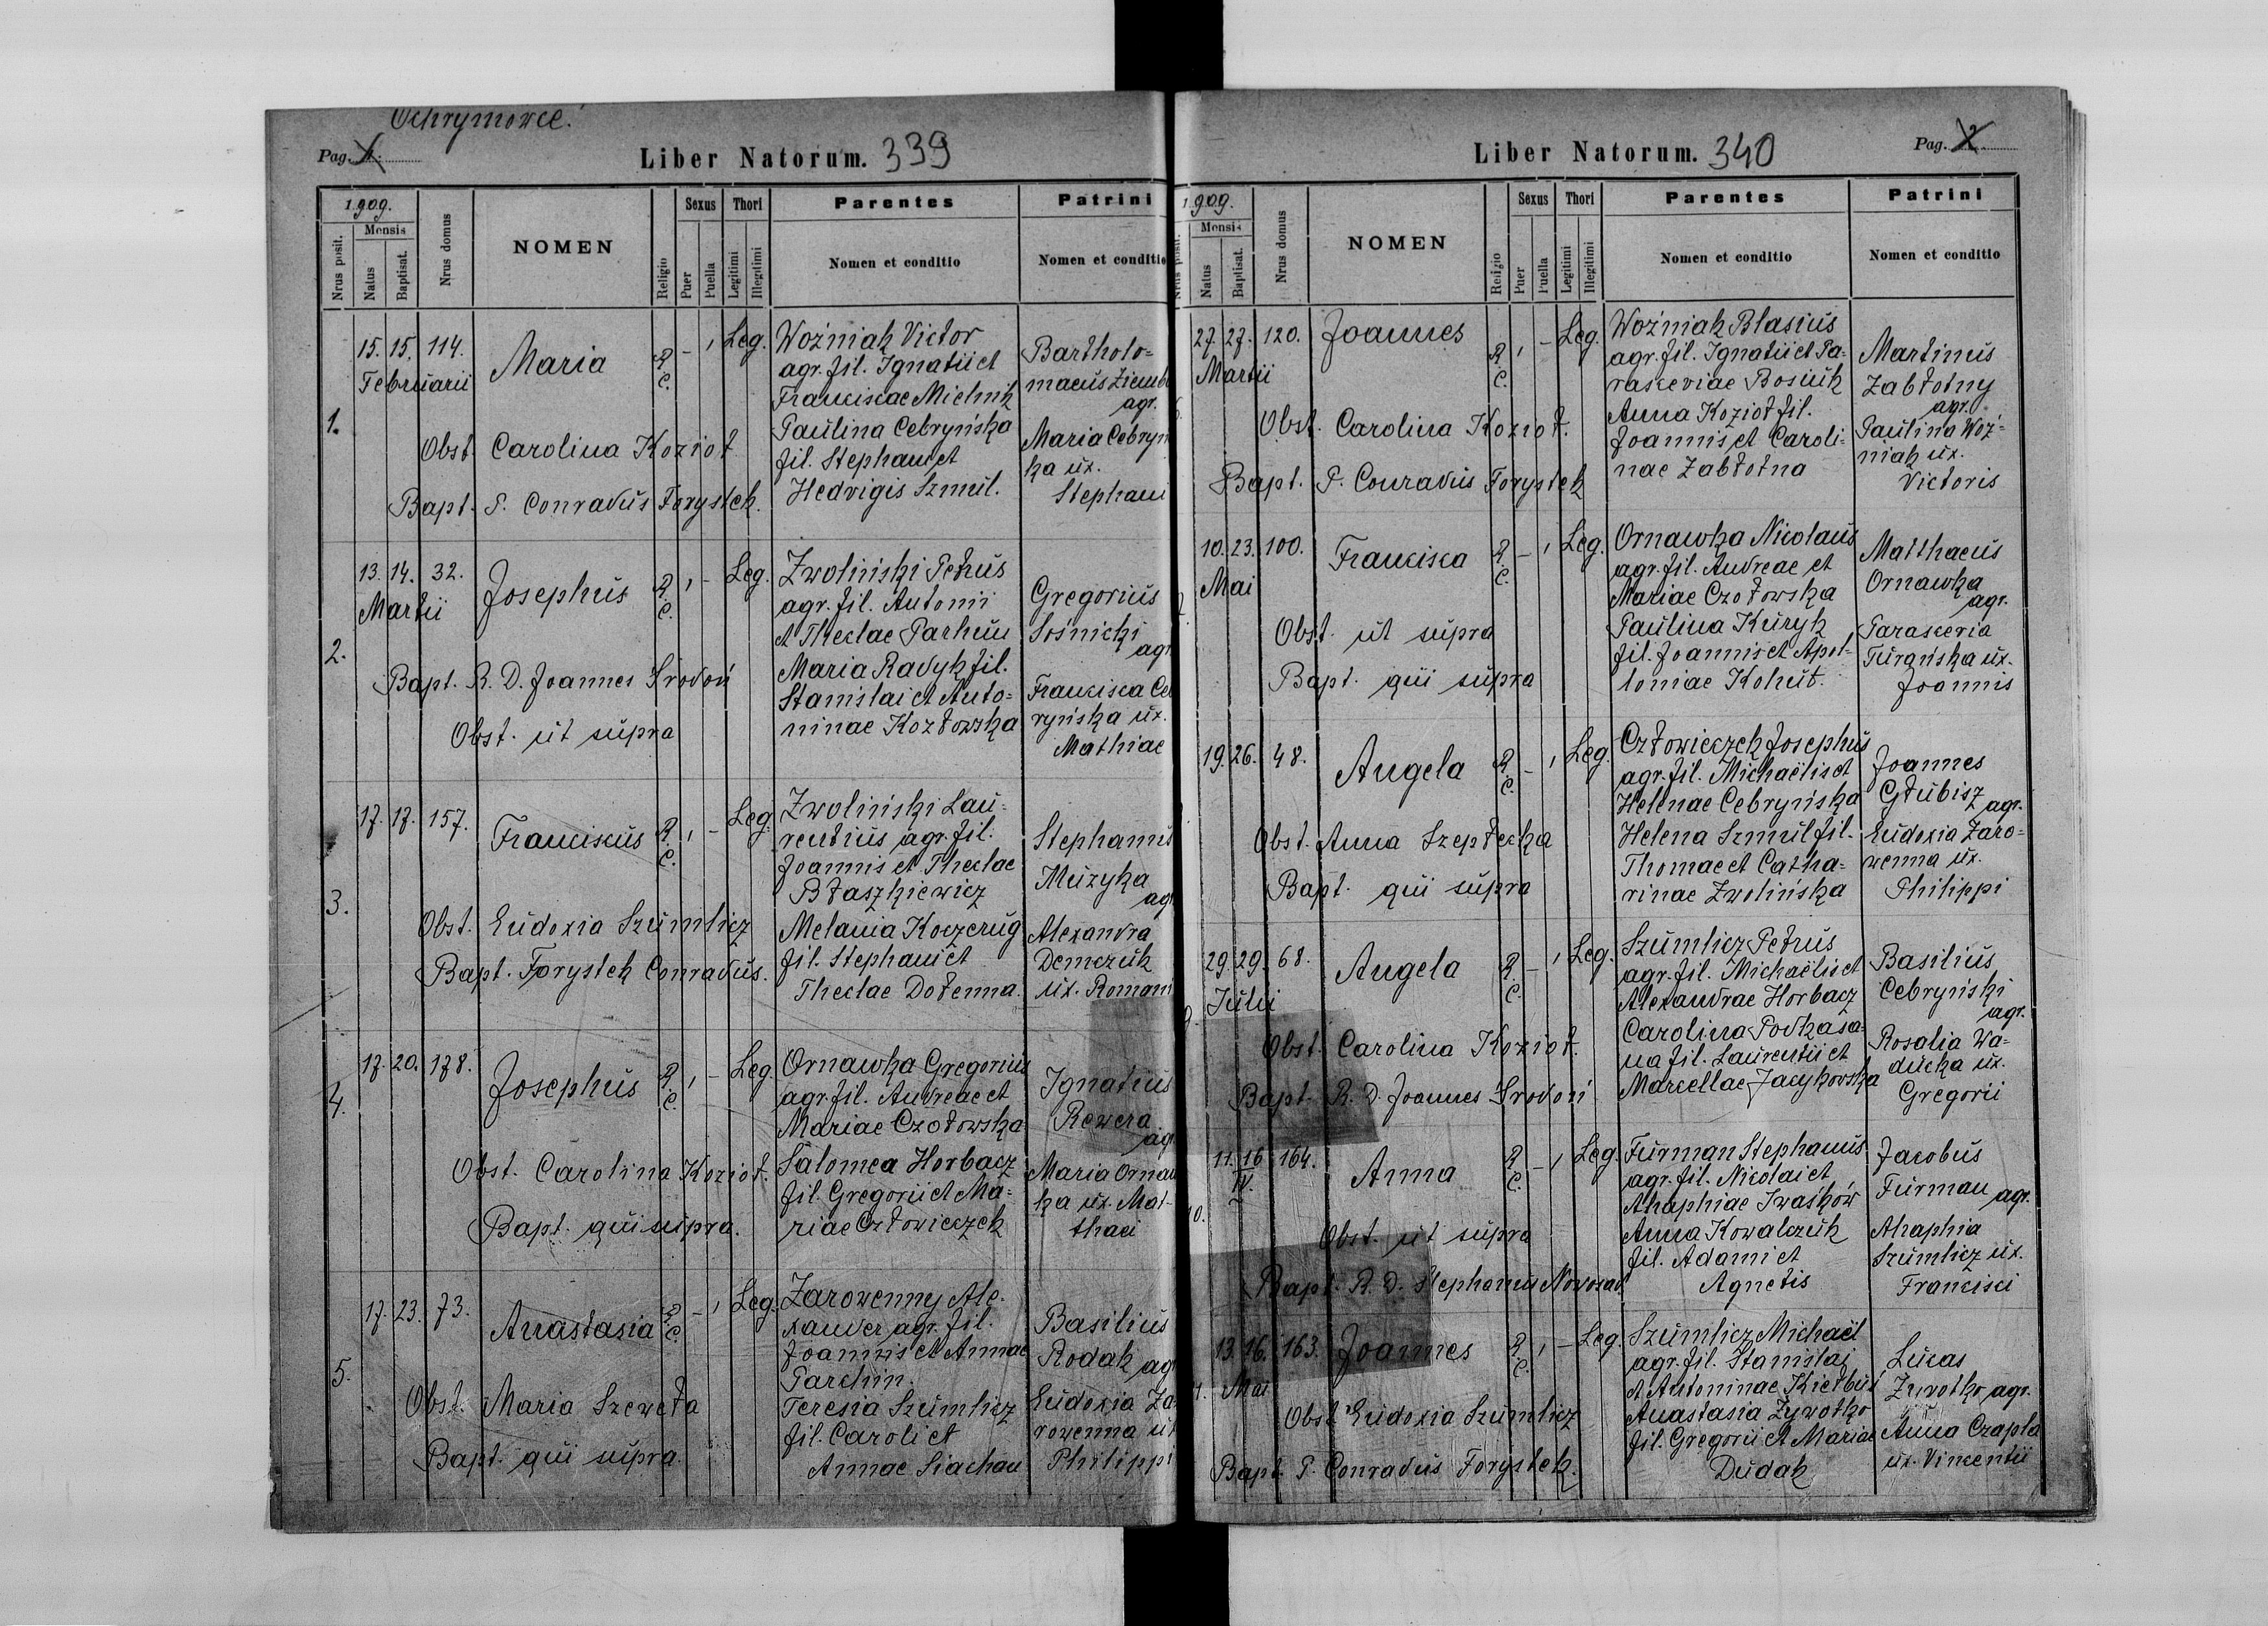 Ochrymowce.
Pag. 1.
Liber Natorum. 339
1909.
Mensis
Nrus posit.
Natus
Baptisat.
Nrus domus
NOMEN
Religio
Sexus
Puer
Puella
Thori
Legitimi
Illegitimi
Parentes
Nomen et conditio
Patrini
Nomen et conditio
1.
15. 15. 114.
Februarii
Maria
R. C.
- ,
Leg.
Woźniak Victor
agr. fil. Ignatii et
Franciscae Michnik
Paulina Cebryńska
fil. Stephani et
Hedvigis Szmul.
Bartholo=
maeus Ziemb
agr.
Maria Cebryn
ka ux.
Stephani
Obst. Carolina Kozioł
Bapt. P. Conradus Forystek.
2.
13. 14. 32.
Martii
Josephus
R. C.
, -
Leg.
Zwoliński Petrus
agr. fil. Antonii
et Theclae Parhun
Maria Radyk fil.
Stanislai et Anto=
ninae Kozłowska
Gregorius
Sośnicki
agr.
Francisca Ce
ryńska ux.
Mathiae
Bapt. R. D. Joannes Srodoń
Obst. ut supra
3.
17. 17. 157.
Franciscus
R. C.
, -
Leg.
Zwoliński Lau=
rentius agr. fil.
Joannis et Theclae
Błaszkiewicz
Melania Koczerug
fil. Stephani et
Theclae Dołenna.
Stephanus
Muzyka
agr
Alexandra
Demczuk
ux. Romani
Obst. Eudoxia Szumlicz
Bapt. Forystek Conradus.
4.
17. 20. 178.
Josephus
R. C.
, -
Leg.
Ornawka Gregorius
agr. fil. Andreae et
Mariae Czołowska
Salomea Horbacz
fil. Gregorii et Ma=
riae Człowieczek
Ignatius
Rewera
agr
Maria Ornaw
ka ux. Mat-
thaei
Obst. Carolina Kozioł.
Bapt. qui supra.
5.
17. 23. 73.
Anastasia
R. C.
- ,
Leg.
Zarowenny Ale-
xander agr. fil.
Joannis et Annae
Parchin.
Teresia Szumlicz
fil. Caroli et
Annae Siachan
Basilius
Rodak agr
Eudoxia Za
rowenna ux
Philippi
Obst. Maria Szeweła
Bapt. qui supra.
Liber Natorum. 340
Pag. 2
1909.
Mensis
Nrus posit.
Natus
Baptisat.
Nrus domus
NOMEN
Religio
Sexus
Puer
Puella
Thori
Legitimi
Illegitimi
Parentes
Nomen et conditio
Patrini
Nomen et conditio
27. 27. 120.
Martii
Joannes
R. C.
, -
Leg.
Woźniak Blasius
agr. fil. Ignatii et Pa-
rasceviae Bosiuk
Anna Kozioł fil.
Joannis et Caroli-
nae Zabłotna
Martinus
Zabłotny
agr.
Paulina Woź=
niak ux.
Victoris
Obst. Carolina Kozioł.
Bapt. P. Conradus Forystek
10. 23. 100.
Mai
Francisca
R. C.
- ,
Leg.
Ornawka Nicolaus
agr. fil. Andreae et
Mariae Czołowska
Paulina Kuryk
fil. Joannis et Apol-
loniae Kohut.
Matthaeus
Ornawka
agr.
Parascevia
Turańska ux.
Joannis
Obst. ut supra
Bapt. qui supra
19. 26. 48.
Angela
R. C.
- ,
Leg.
Człowieczek Josephus
agr. fil. Michaëlis et
Helenae Cebryńska
Helena Szmul fil.
Thomae et Catha-
rinae Zwolińska
Joannes
Głubisz
agr.
Eudoxia Zaro=
wenna ux.
Philippi
Obst. Anna Szepłecka
Bapt. qui supra
29. 29. 68.
Julii
Angela
R. C.
- ,
Leg.
Szumlicz Petrus
agr. fil. Michaëlis et
Alexandrae Horbacz
Carolina Podkasa-
na fil. Laurentii et
Marcellae Jacykovska
Basilius
Cebryński
agr.
Rosalia Wa=
ducka ux.
Gregorii
Obst. Carolina Kozioł.
Bapt. R. D. Joannes Srodoń
10.
11. 16 164.
IV.
Anna
R. C.
- ,
Leg.
Furman Stephanus
agr. fil. Nicolai et
Ahaphiae Iwaśków
Anna Kowalczuk
fil. Adami et
Agnetis
Jacobus
Furman agr.
Ahaphia
Szumlicz ux.
Francisci
Obst. ut supra
Bapt. R. D. Stephanus Novosad
13 16. 163.
Mai
Joannes
R. C.
, -
Leg.
Szumlicz Michaël
agr. fil. Stanislai
et Antoninae Kiełbus
Anastasia Żywotko
fil. Gregorii et Mariae
Dudak
Lucas
Żywotko agr.
Anna Czapla
ux. Vincentii
Obst. Eudoxia Szumlicz
Bapt. P. Conradus Forystek.